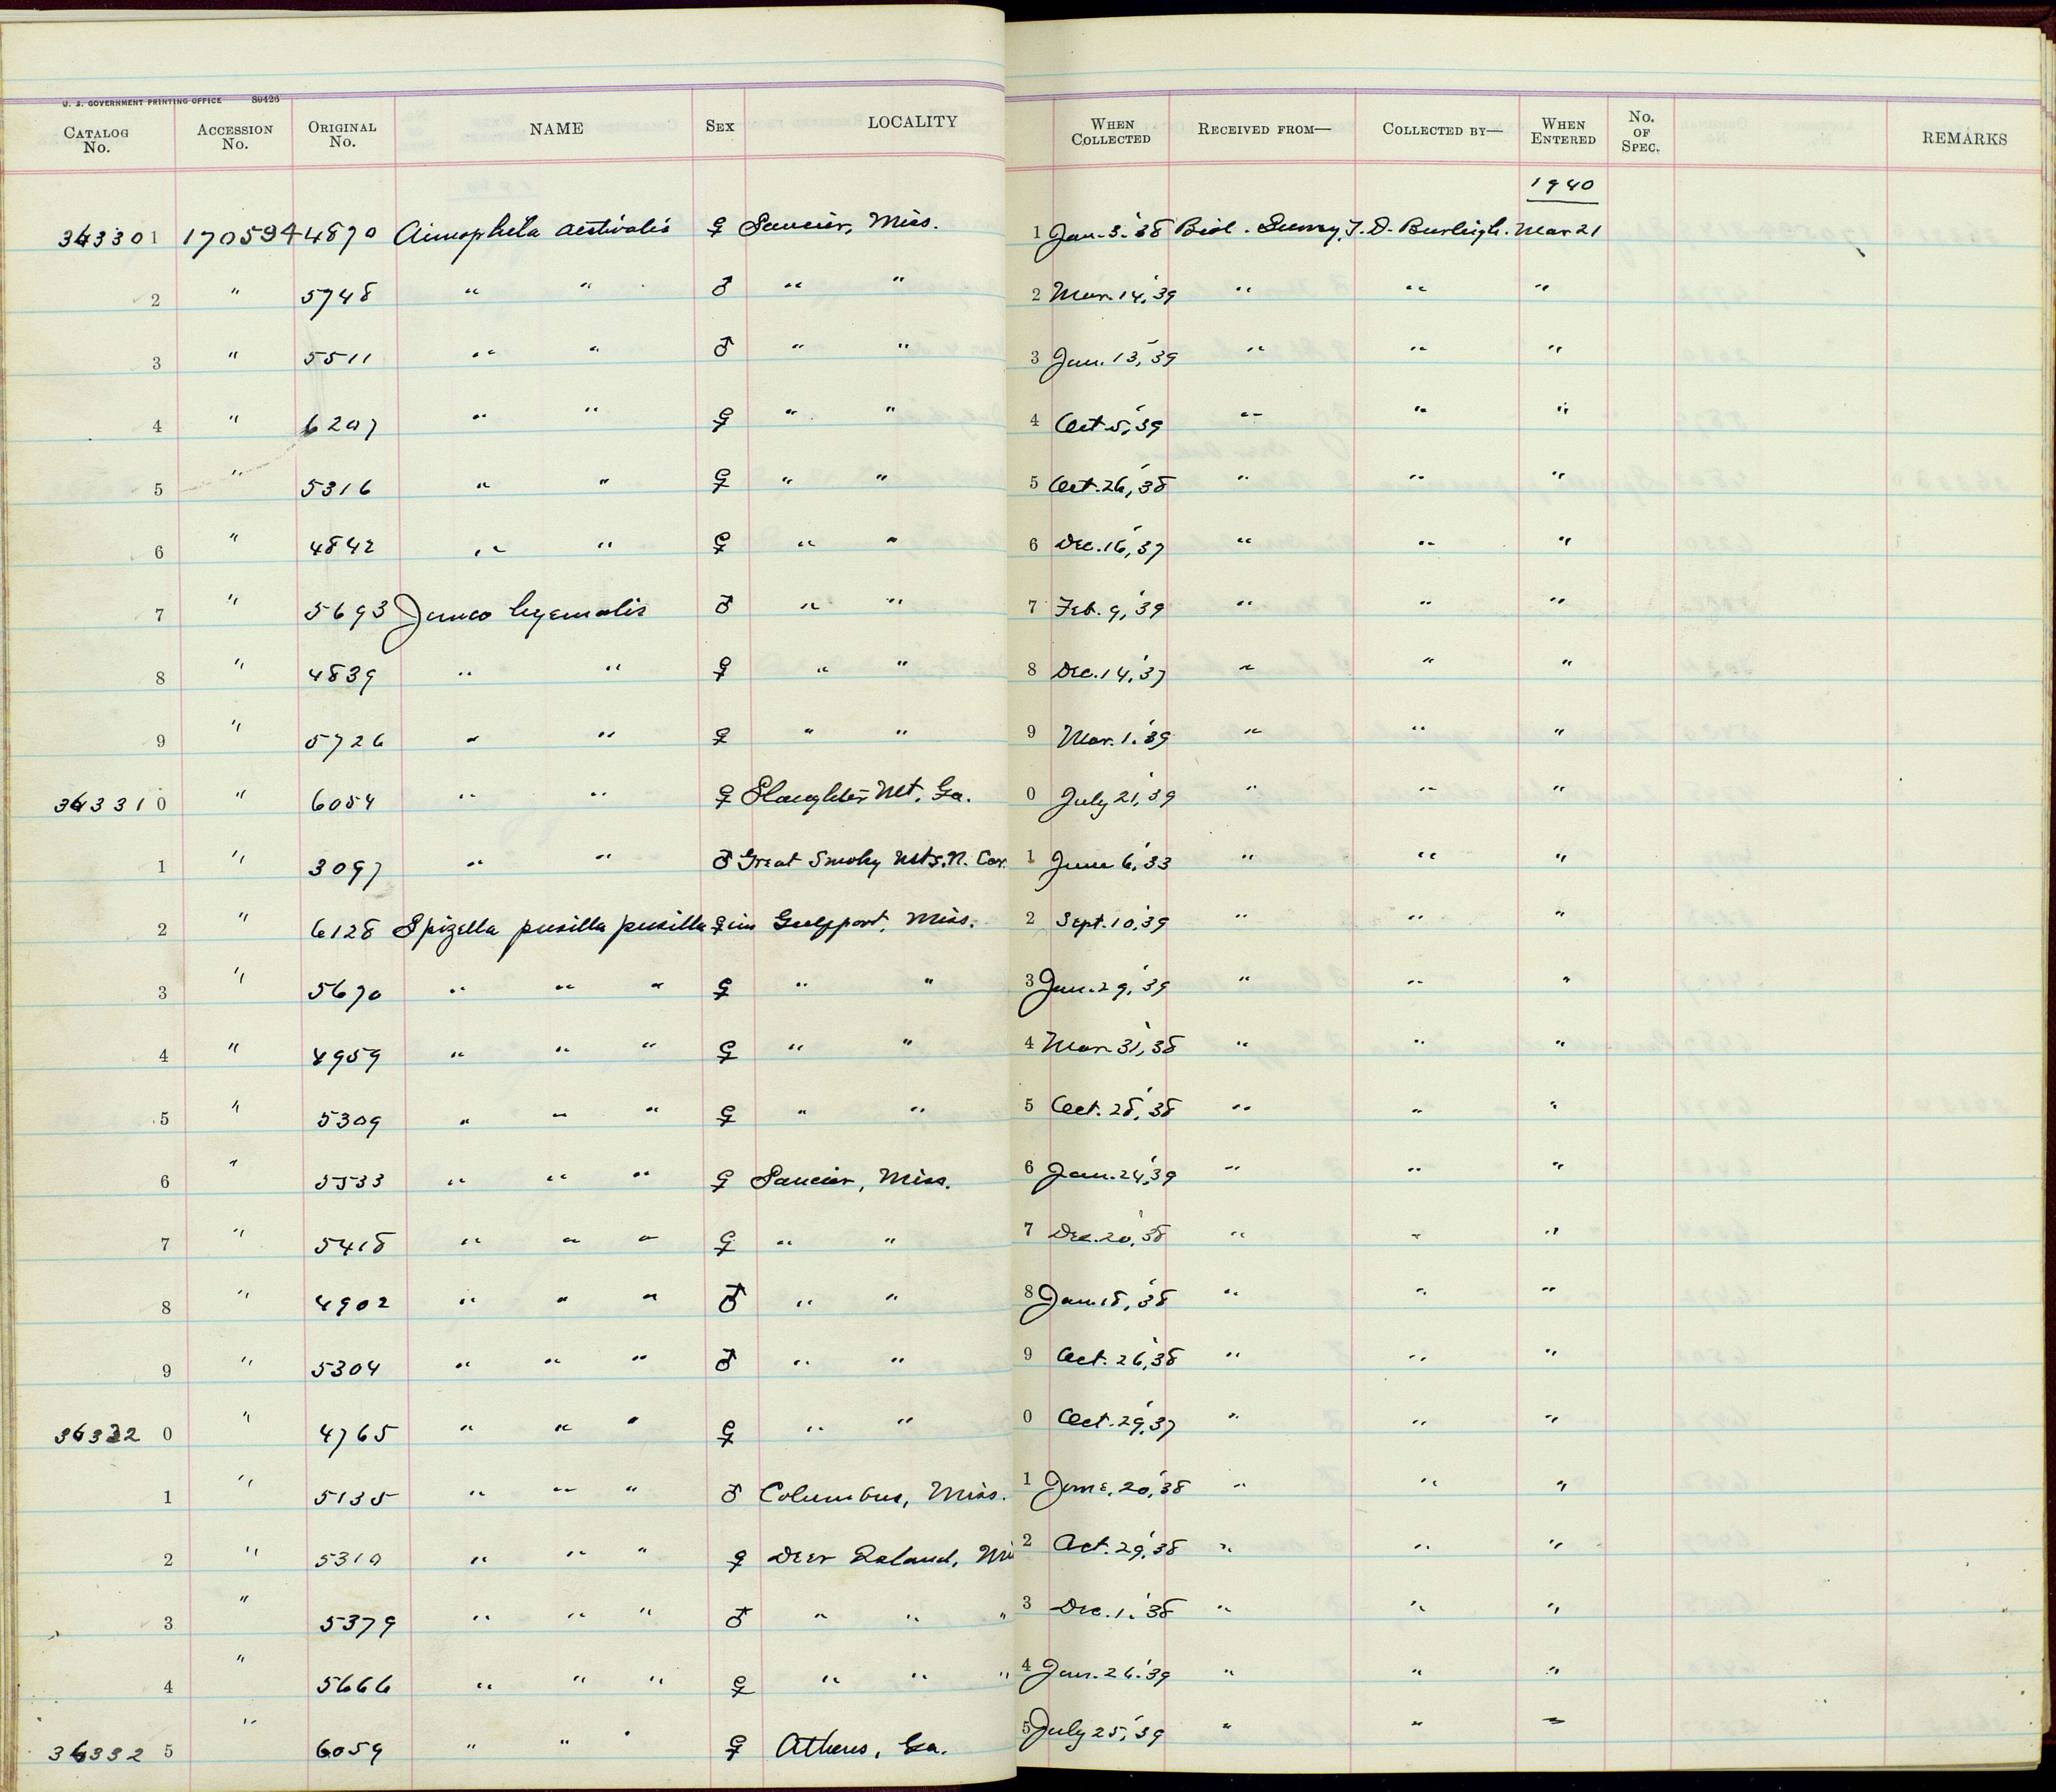 U. S. GOVERNMENT PRINTING OFFICE 80426
CATALOG No. ACCESSION No. ORIGINAL No. NAME SEX LOCALITY WHEN COLLECTED RECEIVED FROM— COLLECTED BY— WHEN ENTERED No. OF SPEC. REMARKS
1940
363301 170594 4870 Aimophila aestivalis ♀ Saucier, Miss. 1 Jan. 3, '38 Biol. Survey, T. D. Burleigh. Mar 21
2 " 5748 " " ♂ " " 2 Mar. 14, '39 " " "
3 " 5511 " " ♂ " " 3 Jan. 13, '39 " " "
4 " 6207 " " ♀ " " 4 Oct. 5, '39 " " "
5 " 5316 " " ♀ " " 5 Oct. 26, '38 " " "
6 " 4842 " " ♀ " " 6 Dec. 16, '37 " " "
7 " 5693 Junco hyemalis ♂ " " 7 Feb. 9, '39 " " "
8 " 4839 " " ♀ " " 8 Dec. 14, '37 " " "
9 " 5726 " " ♀ " " 9 Mar. 1, '39 " " "
363310 " 6054 " " ♀ Slaughter Mt., Ga. 0 July 21, '39 " " "
1 " 3097 " " ♂ Great Smoky Mts., N. Car. 1 June 6, '33 " " "
2 " 6128 Spizella pusilla pusilla ♀ im Gulfport, Miss. 2 Sept. 10, '39 " " "
3 " 5670 " " " ♀ " " 3 Jan. 29, '39 " " "
4 " 4959 " " " ♀ " " 4 Mar. 31, '38 " " "
5 " 5309 " " " ♀ " " 5 Oct. 28, '38 " " "
6 " 5533 " " " ♀ Saucier, Miss. 6 Jan. 24, '39 " " "
7 " 5418 " " " ♀ " " 7 Dec. 20, '38 " " "
8 " 4902 " " " ♂ " " 8 Jan. 18, '38 " " "
9 " 5304 " " " ♂ " " 9 Oct. 26, '38 " " "
36332 0 " 4765 " " " ♀ " " 0 Oct. 29, '37 " " "
1 " 5135 " " " ♂ Columbus, Miss. 1 June, 20, '38 " " "
2 " 5310 " " " ♀ Deer Island, Mi 2 Oct. 29, '38 " " "
3 " 5379 " " " ♂ " " " 3 Dec. 1, '38 " " "
4 " 5666 " " " ♀ " " " 4 Jan. 26, '39 " " "
36332 5 " 6059 " " " ♀ Athens, Ga. 5 July 25, '39 " " "